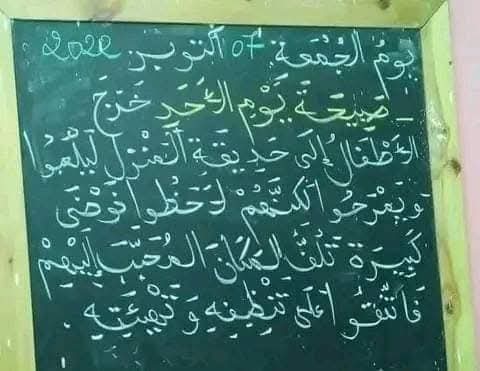 يَوْمُ الْجُمُعَةِ 07 أكتوبر 2022
_ صَبِيحَةَ يَوْمِ الأَحَدِ خَرَجَ
الأَطْفَالُ إِلَى حَدِيقَةِ الْمَنْزِلِ لِيَلْعَبُوا
وَيَمْرَحُوا لَكِنَّهُمْ لَاحَظُوا فَوْضَى
كَبِيرَةً تَلُفُّ الْمَكَانَ الْمُحَبَّبَ إِلَيْهِمْ
فَاتَّفَقُوا عَلَى تَنْظِيفِهِ وَتَهْيِئَتِهِ .